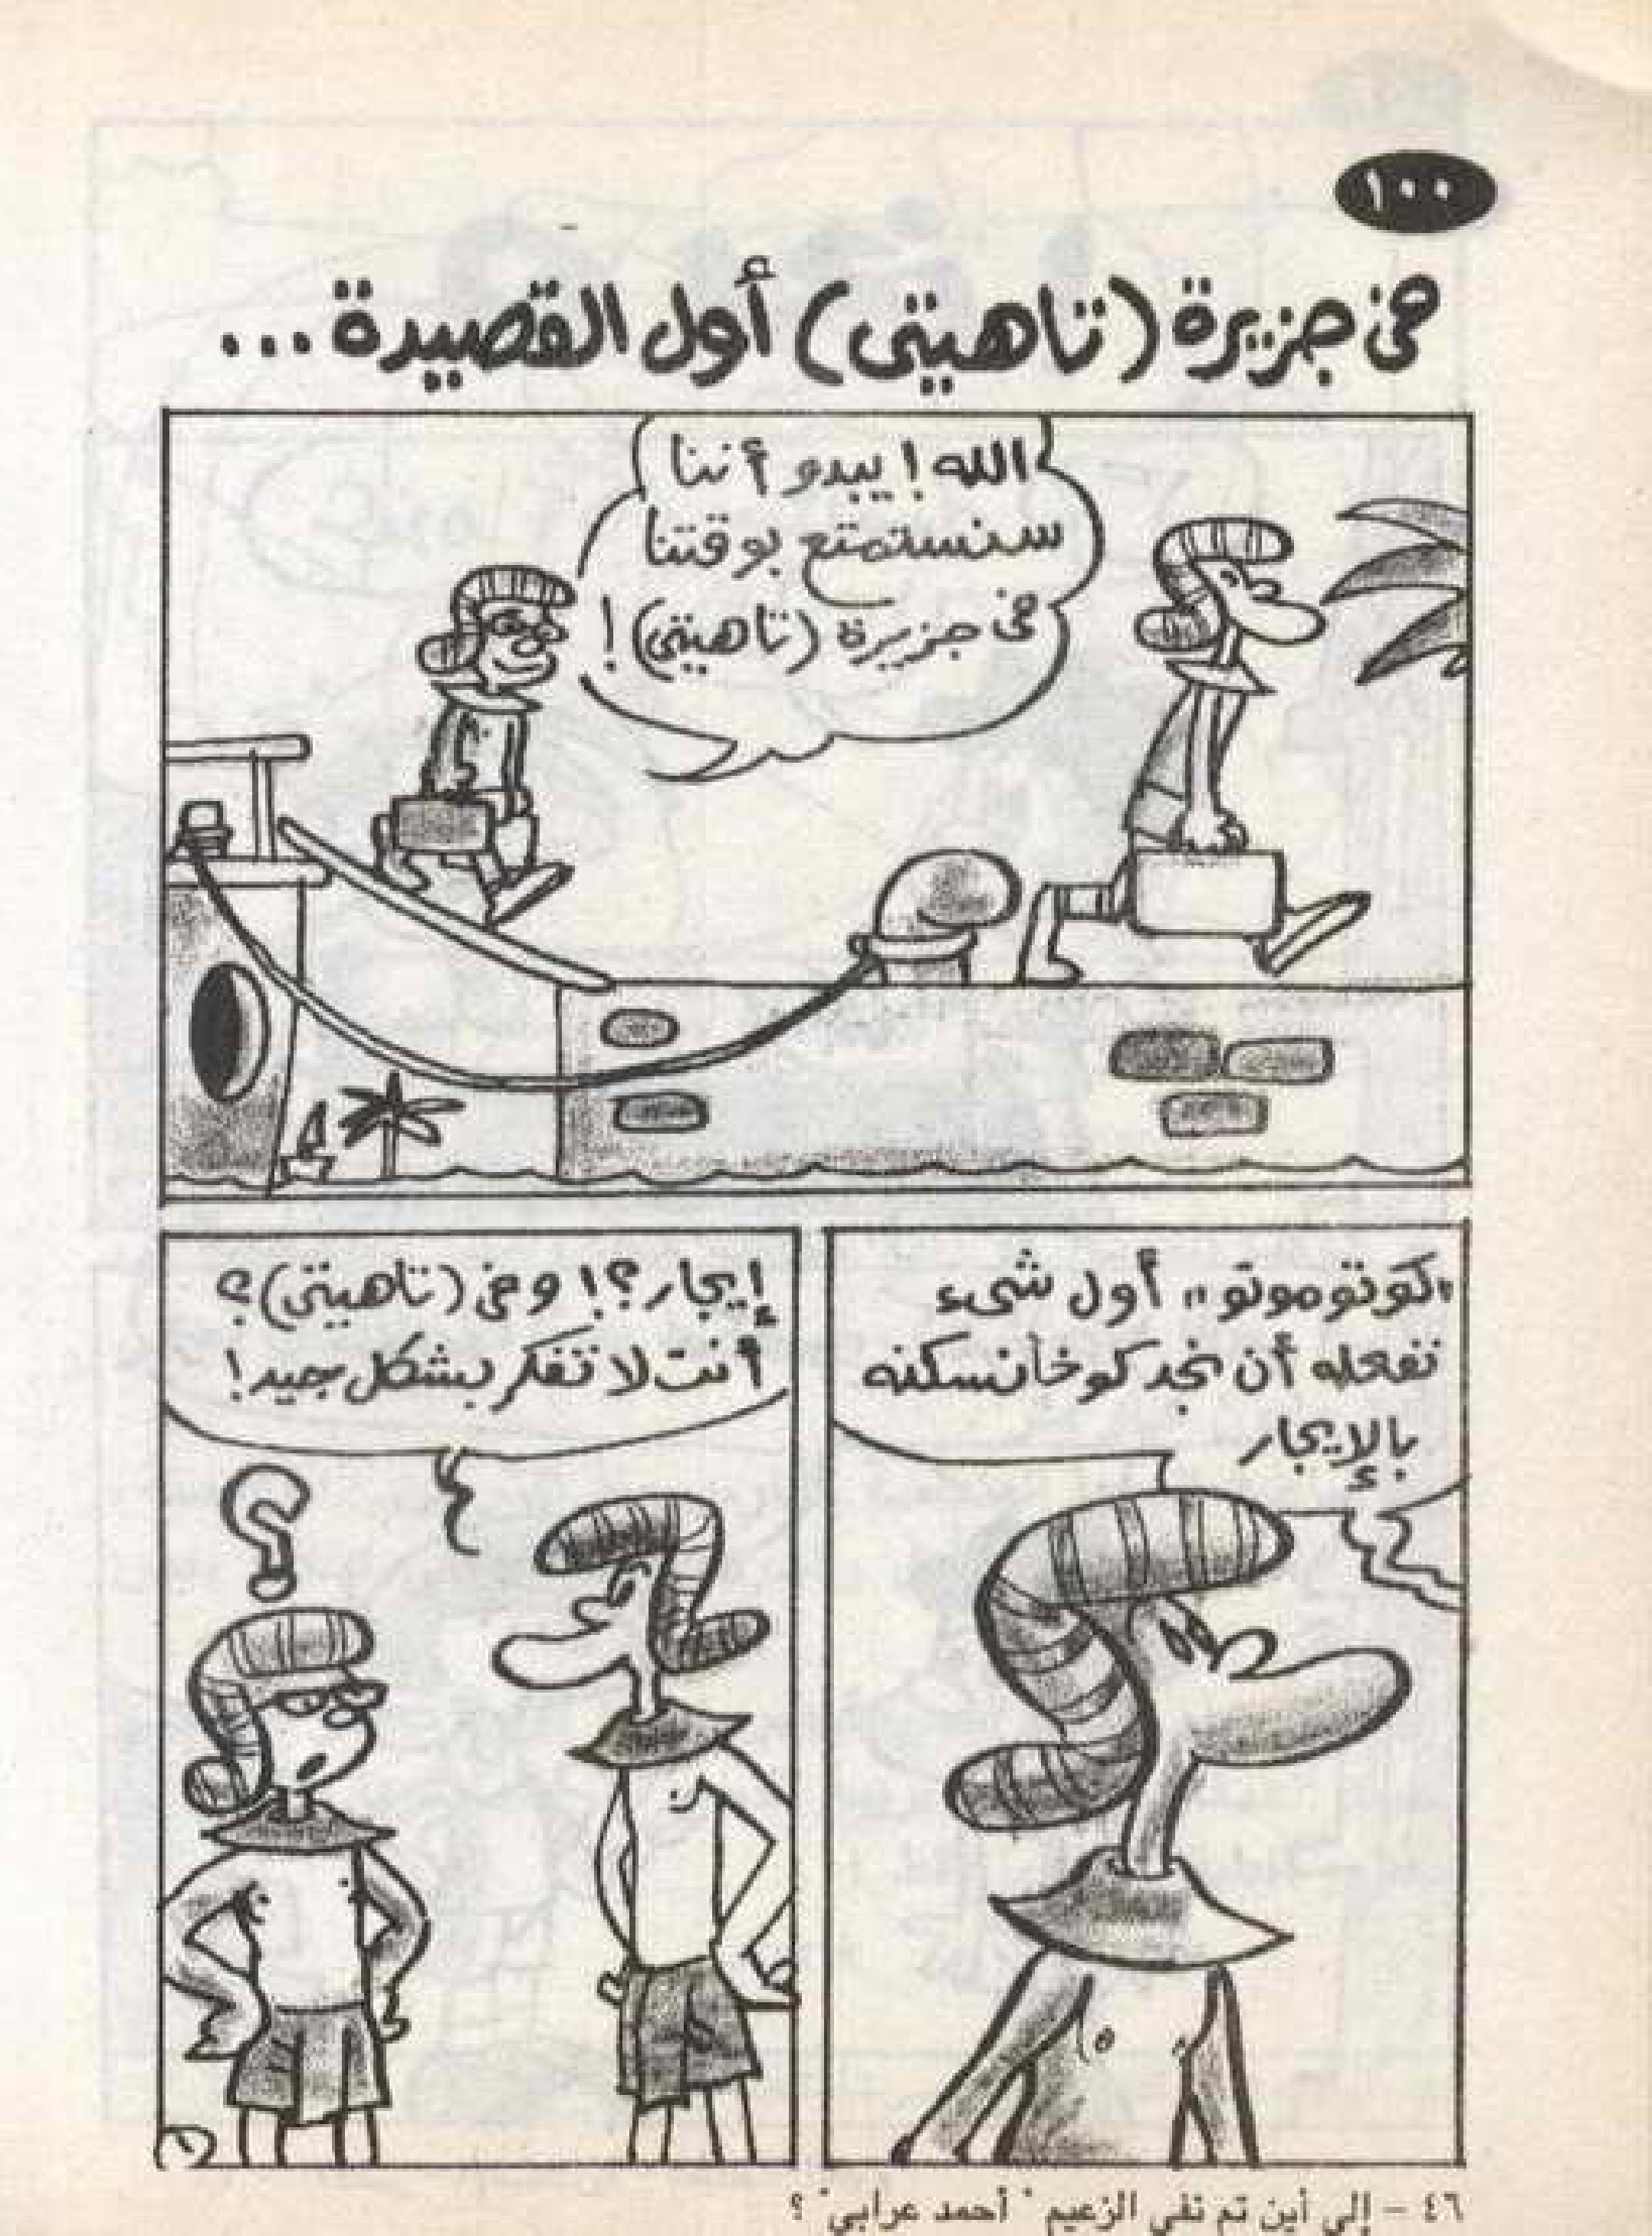 ١٠٠
فى جزيرة (تاهيتى) أول القصيدة ...
الله! يبدو أننا
سنستمتع بوقتنا
فى جزيرة (تاهيتى)!
"كوتوموتو" أول شىء
نفعله أن نجد كوخاً نسكنه
بالإيجار
إيجار؟! وفى (تاهيتى)؟
أنت لا تفكر بشكل جيد!
؟
٤٦ - إلى أين تم نفي الزعيم " أحمد عرابي " ؟